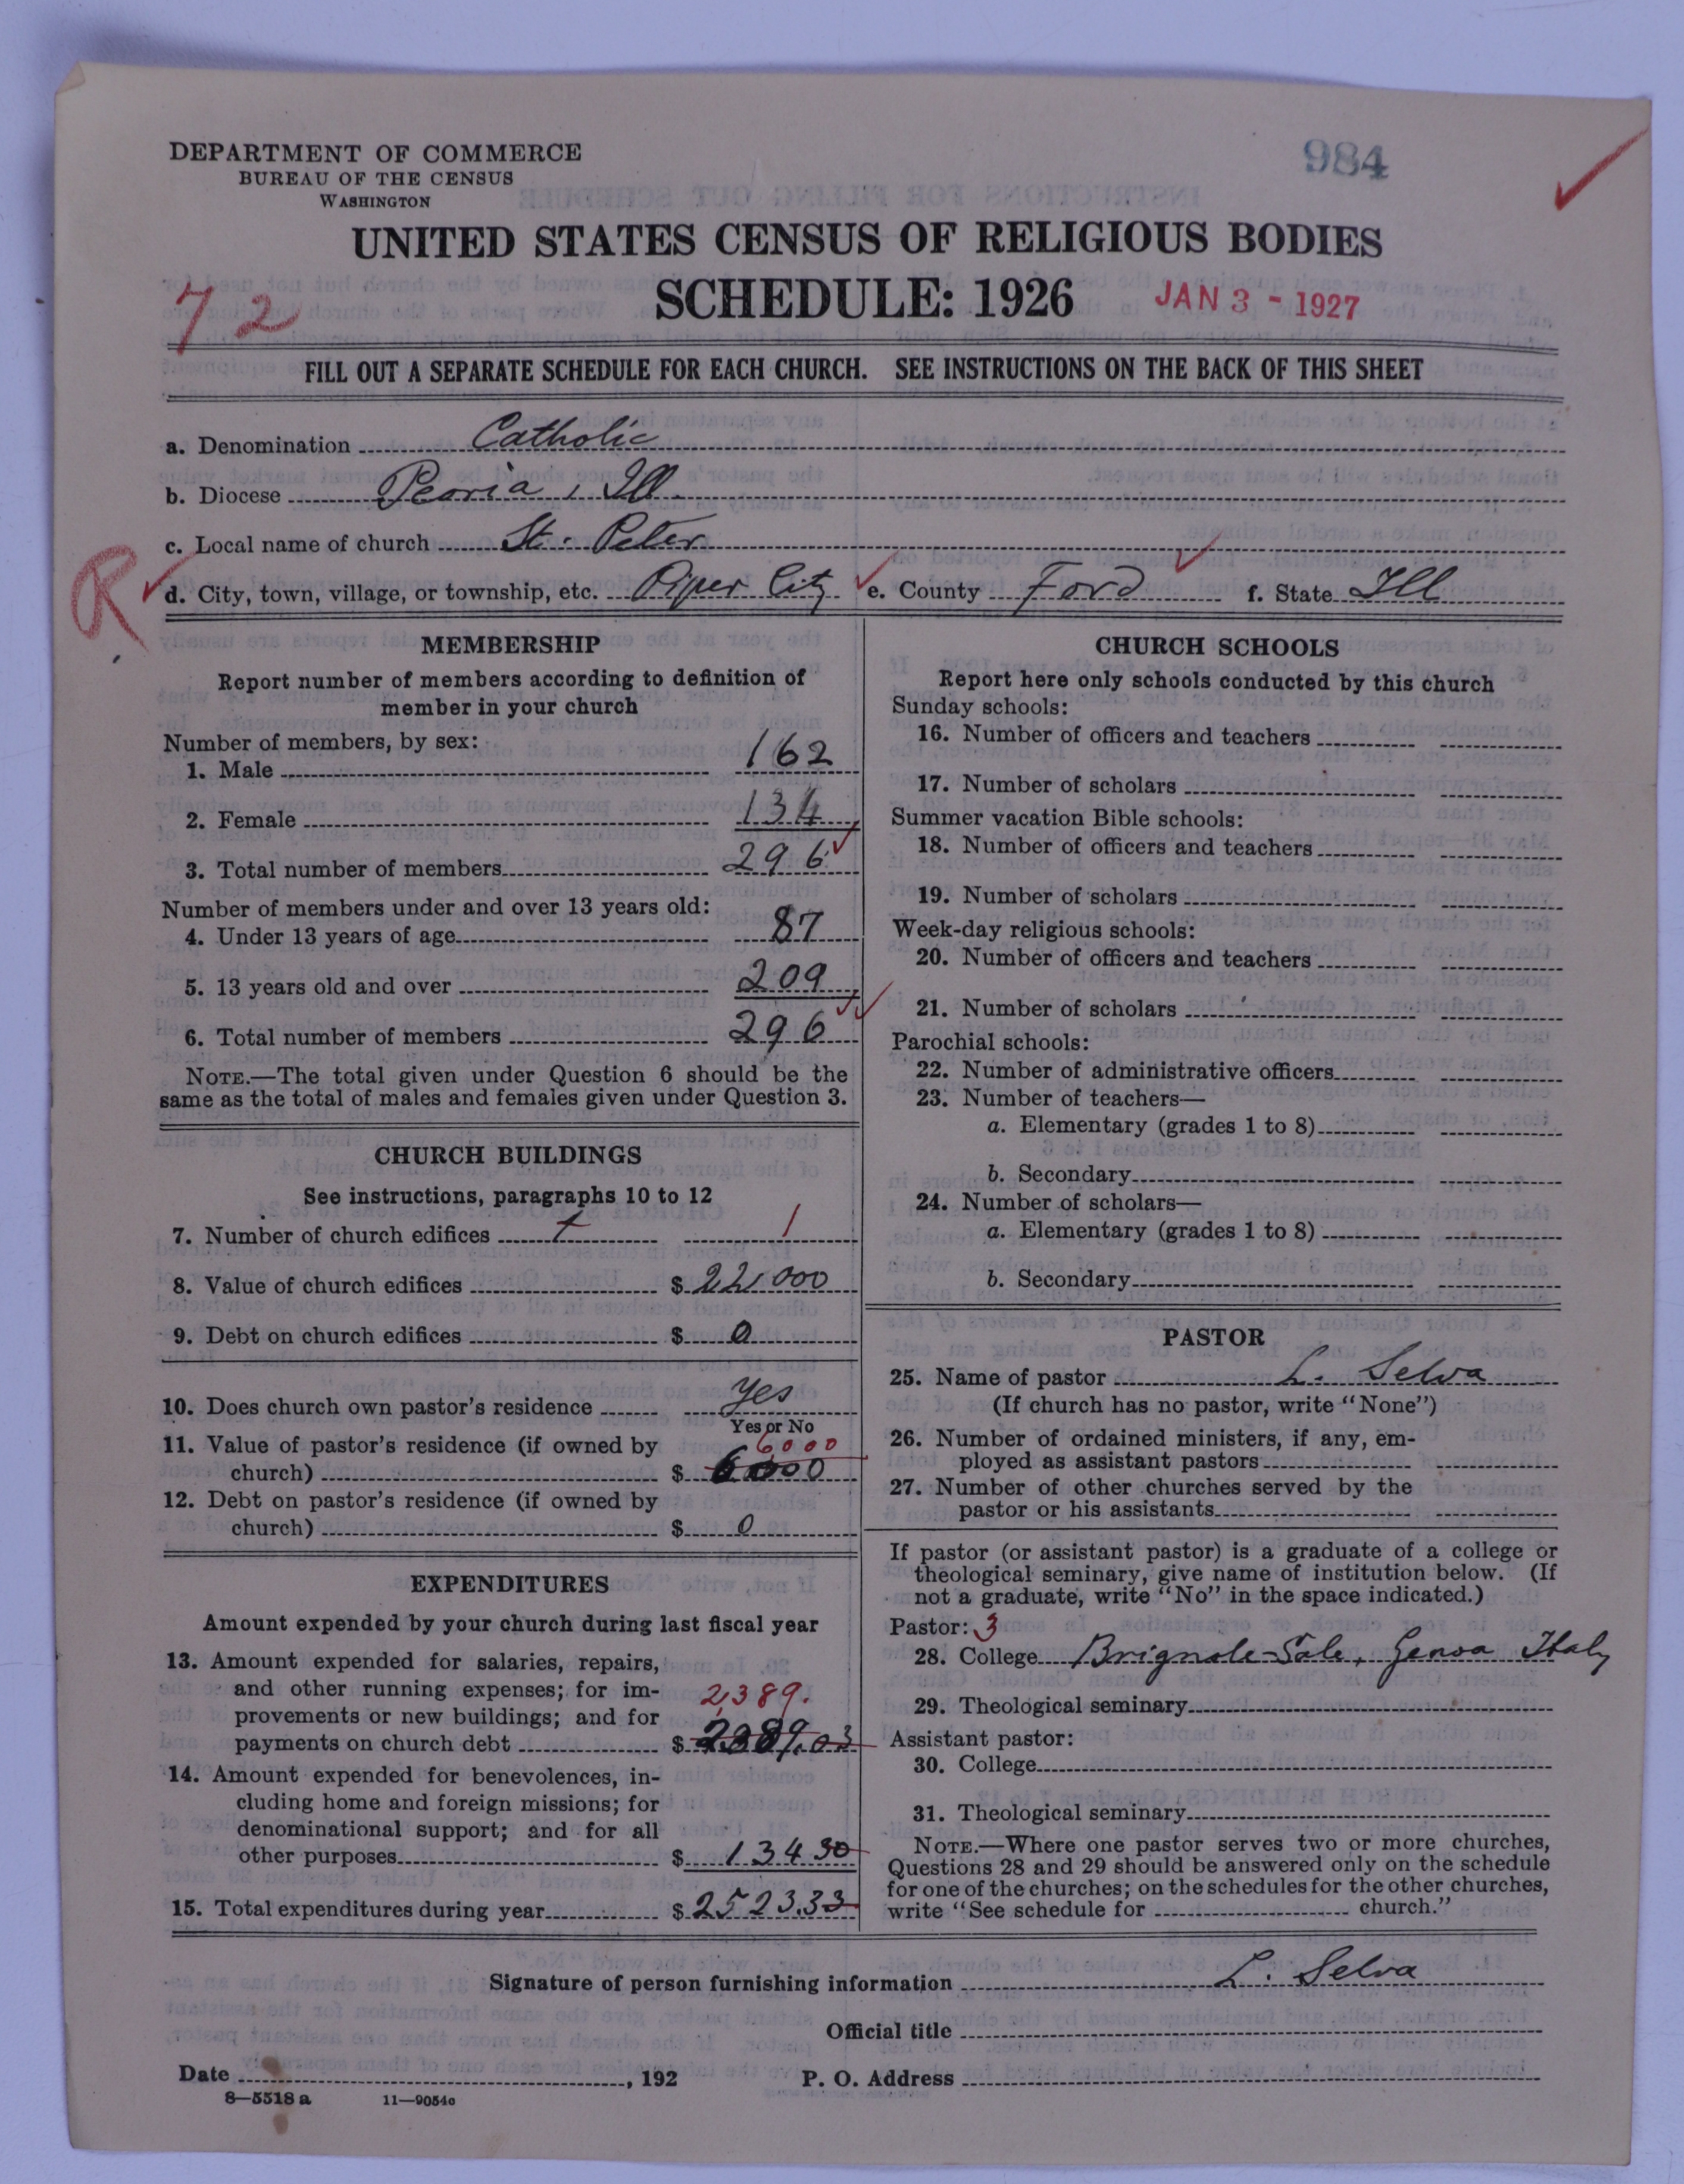 DEPARTMENT OF COMMERCE
BUREAU OF THE CENSUS
WASHINGTON
984
UNITED STATES CENSUS OF RELIGIOUS BODIES
SCHEDULE: 1926
JAN 3 - 1927
72
FILL OUT A SEPARATE SCHEDULE FOR EACH CHURCH. SEE INSTRUCTIONS ON THE BACK OF THIS SHEET
a. Denomination Catholic
b. Diocese Peoria, Ill.
c. Local name of church St. Peter
R
d. City, town, village, or township, etc. Piper City e. County Ford f. State Ill
MEMBERSHIP
Report number of members according to definition of
member in your church
Number of members, by sex:
1. Male 162
2. Female 134
3. Total number of members 296
Number of members under and over 13 years old:
4. Under 13 years of age 87
5. 13 years old and over 209
6. Total number of members 296
NOTE.—The total given under Question 6 should be the
same as the total of males and females given under Question 3.
CHURCH BUILDINGS
See instructions, paragraphs 10 to 12
7. Number of church edifices 1 1
8. Value of church edifices $ 22,000
9. Debt on church edifices $ 0
10. Does church own pastor's residence yes
Yes or No
11. Value of pastor's residence (if owned by
6000
church) $ 6000
12. Debt on pastor's residence (if owned by
church) $ 0
EXPENDITURES
Amount expended by your church during last fiscal year
13. Amount expended for salaries, repairs,
and other running expenses; for im-
2389.
provements or new buildings; and for
payments on church debt $ 2389.03
14. Amount expended for benevolences, in-
cluding home and foreign missions; for
denominational support; and for all
other purposes $ 134 30
15. Total expenditures during year $ 2523.33
CHURCH SCHOOLS
Report here only schools conducted by this church
Sunday schools:
16. Number of officers and teachers
17. Number of scholars
Summer vacation Bible schools:
18. Number of officers and teachers
19. Number of scholars
Week-day religious schools:
20. Number of officers and teachers
21. Number of scholars
Parochial schools:
22. Number of administrative officers
23. Number of teachers—
a. Elementary (grades 1 to 8)
b. Secondary
24. Number of scholars—
a. Elementary (grades 1 to 8)
b. Secondary
PASTOR
25. Name of pastor L. Selva
(If church has no pastor, write "None")
26. Number of ordained ministers, if any, em-
ployed as assistant pastors
27. Number of other churches served by the
pastor or his assistants
If pastor (or assistant pastor) is a graduate of a college or
theological seminary, give name of institution below. (If
not a graduate, write "No" in the space indicated.)
Pastor: 3
28. College Brignole-Sale, Genoa Italy
29. Theological seminary
Assistant pastor:
30. College
31. Theological seminary
NOTE.—Where one pastor serves two or more churches,
Questions 28 and 29 should be answered only on the schedule
for one of the churches; on the schedules for the other churches,
write "See schedule for church."
Signature of person furnishing information L. Selva
Official title
Date , 192 P. O. Address
8—5518 a 11—9054c